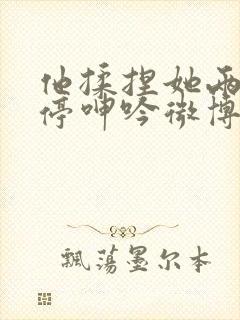 他揉捏她两
停呻吟微博
飘荡墨尔本